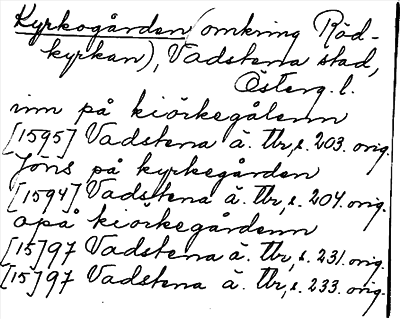 Kyrkogården (omkring Röd-
kyrkan), Vadstena stad,
Österg. l.
inn på kiörkegålenn
[1595] Vadstena ä. Tbr, s. 203. orig.
Jöns på kyrkegården
[1594] Vadstena ä. Tbr, s. 204. orig.
opå kiörkegårdenn
[15]97 Vadstena ä. Tbr, s. 231. orig.
[15]97 Vadstena ä. Tbr, s. 233. orig.